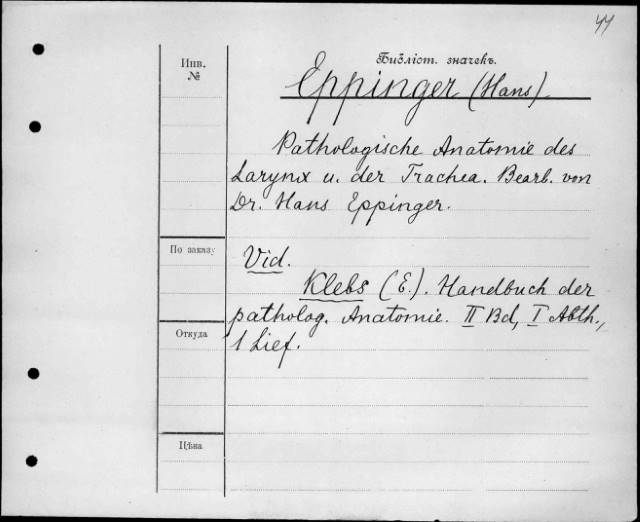 44
Библіот. значекъ.
Инв.
№
Eppinger (Hans).
Pathologische Anatomie des
Larynx u. der Trachea. Bearb. von
Dr. Hans Eppinger.
По заказу
Vid.
Klebs (E.). Handbuch der
patholog. Anatomie. II Bd, I Abth.,
Откуда
1 Lief.
Цѣна